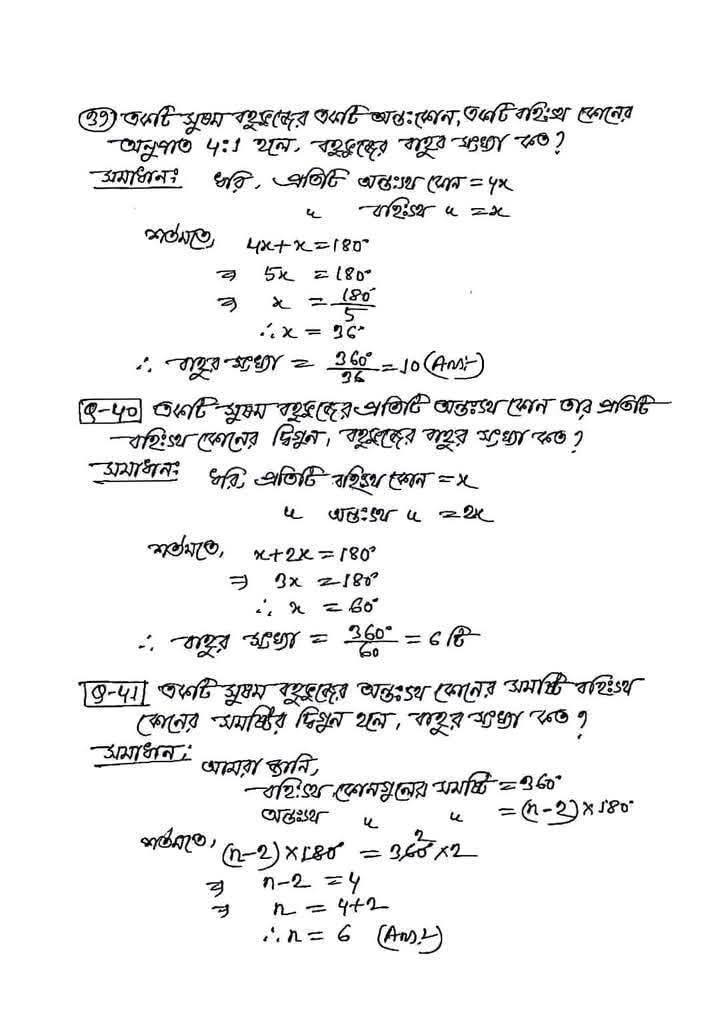 (39) একটি সুষম বহুভুজের একটি অন্তঃকোন, একটি বহিঃস্থ কোনের
অনুপাত 4:1 হলে, বহুভুজের বাহুর সংখ্যা কত?
সমাধানঃ ধরি, প্রতিটি অন্তঃস্থ কোন = 4x
" বহিঃস্থ " = x
শর্তমতে, 4x + x = 180°
⇒ 5x = 180°
⇒ x = 180°/5
∴ x = 36°
∴ বাহুর সংখ্যা = 360°/36 = 10 (Ans:-)
Q-40 একটি সুষম বহুভুজের প্রতিটি অন্তঃস্থ কোন তার প্রতিটি
বহিঃস্থ কোনের দ্বিগুন, বহুভুজের বাহুর সংখ্যা কত?
সমাধানঃ ধরি, প্রতিটি বহিঃস্থ কোন = x
" অন্তঃস্থ " = 2x
শর্তমতে, x + 2x = 180°
⇒ 3x = 180°
∴ x = 60°
∴ বাহুর সংখ্যা = 360°/60 = 6 টি
Q-41 একটি সুষম বহুভুজের অন্তঃস্থ কোনের সমষ্টি বহিঃস্থ
কোনের সমষ্টির দ্বিগুন হলে, বাহুর সংখ্যা কত?
সমাধান: আমরা জানি,
বহিঃস্থ কোনগুলের সমষ্টি = 360°
অন্তঃস্থ " " = (n-2) × 180°
শর্তমতে, (n-2) × 180° = 360° 2 × 2
⇒ n-2 = 4
⇒ n = 4+2
∴ n = 6 (Ans:-)